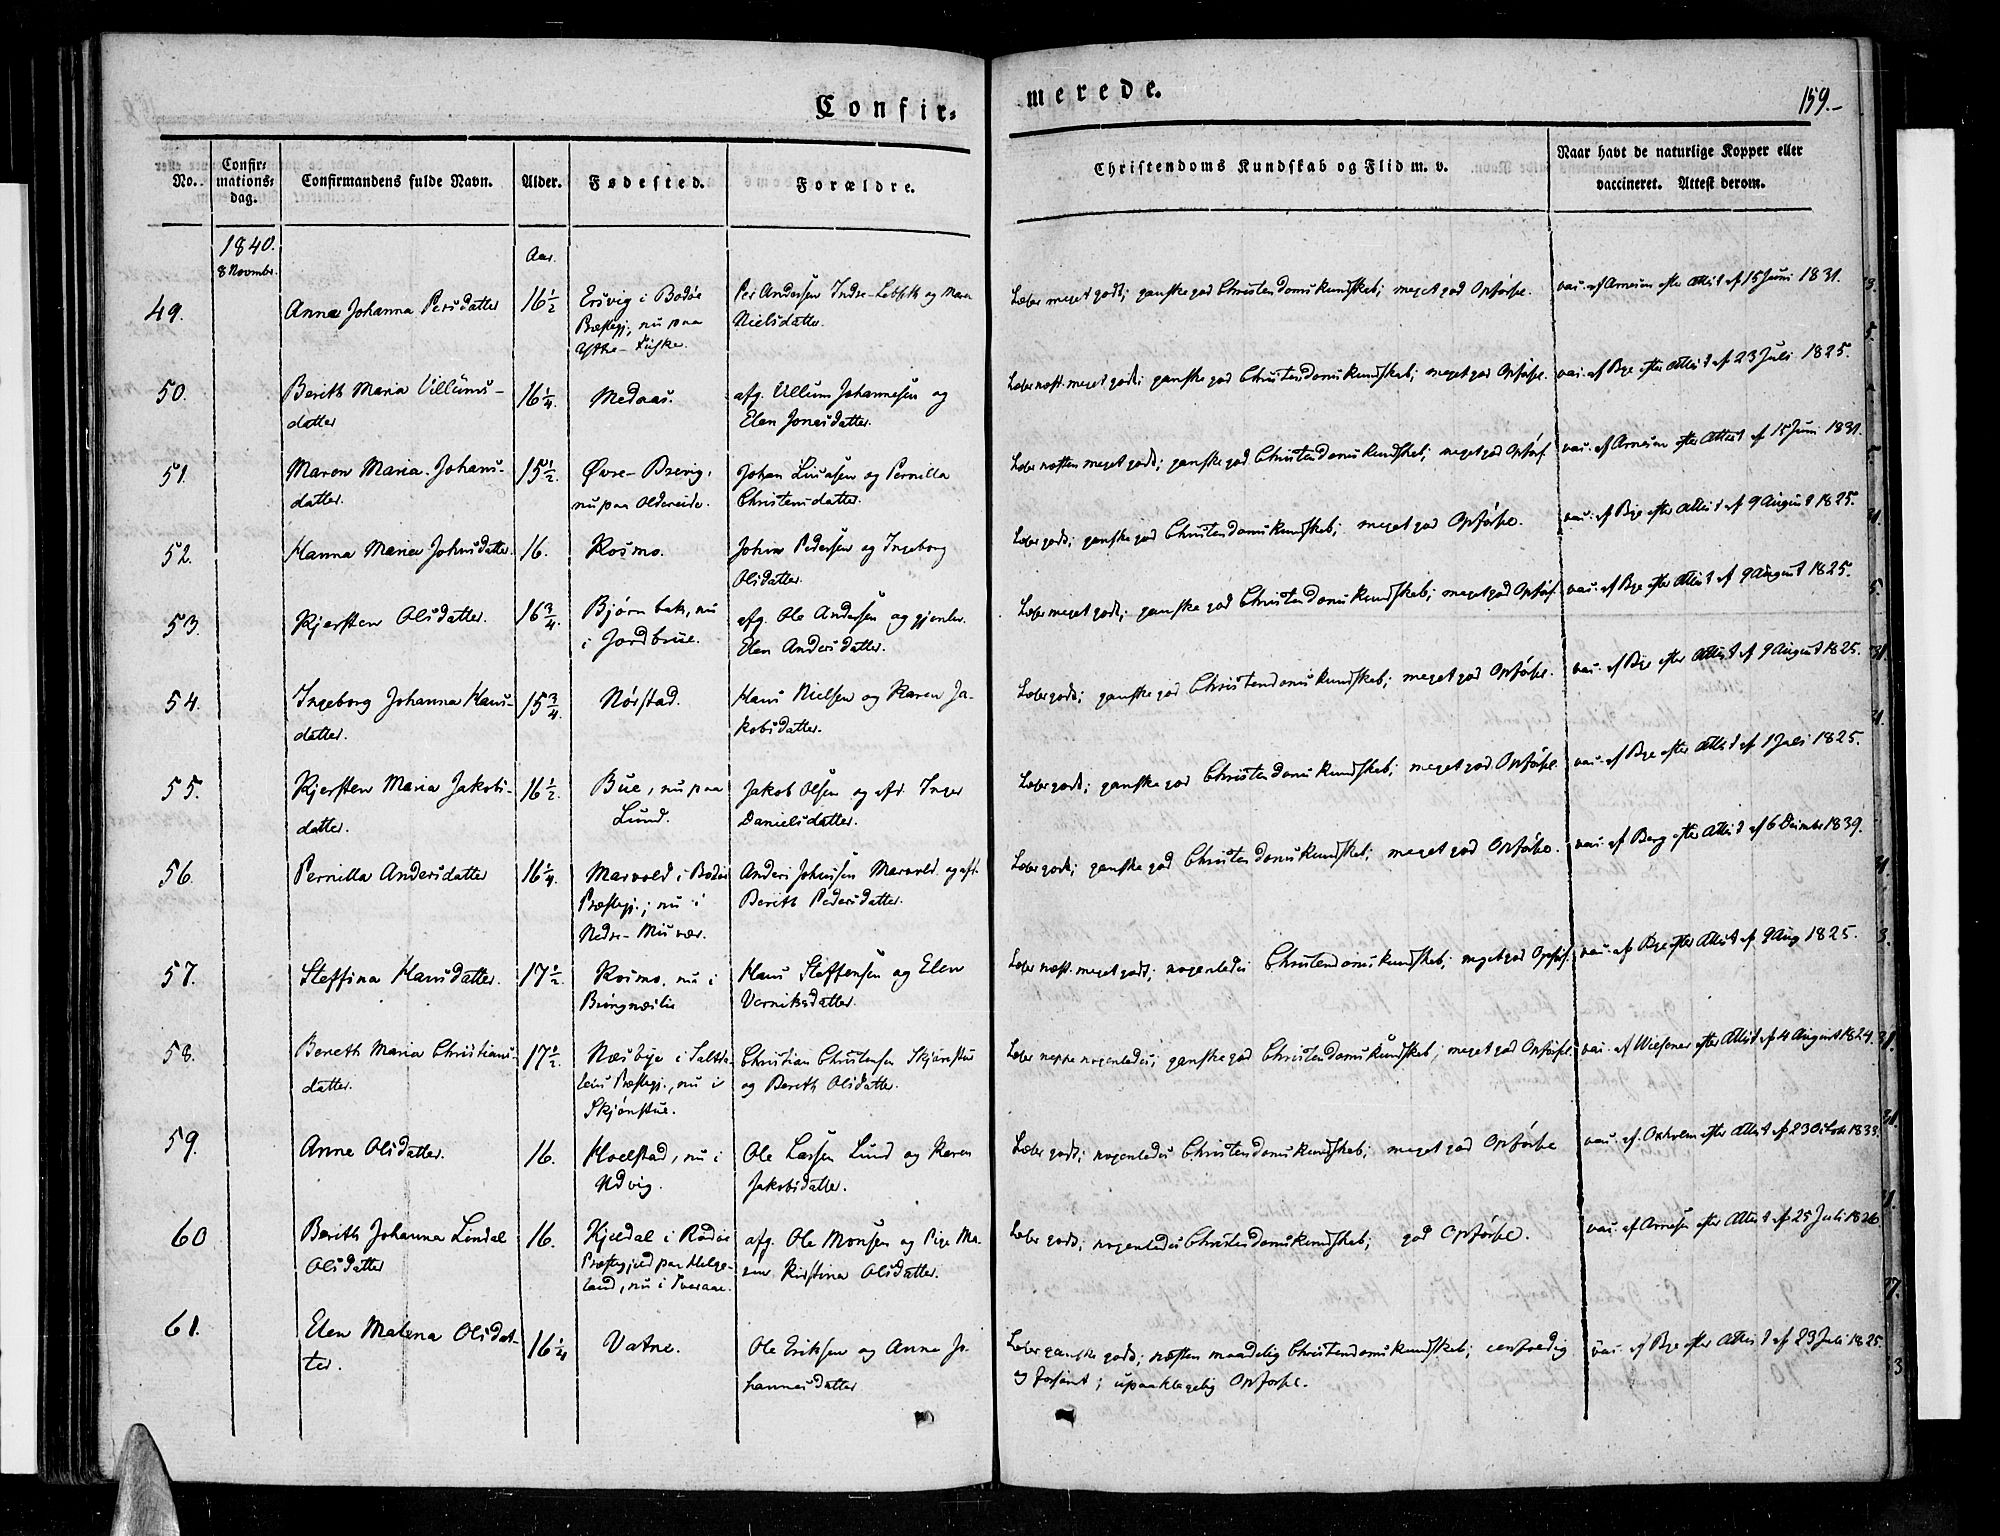 Confir-
merede.
159.-
No.
Confir-
mations-
dag.
Confirmandens fulde Navn.
Alder.
Fødested.
Forældre.
Christendoms Kundskab og Flid m. v.
Naar havt de naturlige Kopper eller
vaccineret. Attest derom.
1840.
8 Novembr.
Aar.
49.
Anna Johanna Persdatter
16 1/2
Ersvig i Bodøe
Præstegj., nu paa
Per Andersen Indre- og Maren
Nielsdatter.
Læser meget godt; ganske god Christendomskundskab; meget god Opførse.
vac. af Arnesen efter Attest af 15 Juni 1831.
50.
Berith Maria Villums-
datter
16 1/4.
Medaas.
afg. Villum Johannesen og
Elen Jonasdatter.
Læser næst. meget godt; ganske god Christendomskundskab; meget god Opførse.
vac. af Bye efter Attest af 23 Juli 1825.
51.
Maren Maria Johans-
datter.
15 1/2.
Øvre- Brevig,
nu paa Oldereide.
Johan Lucasen og Pernilla
Christensdatter.
Læser næsten meget godt; ganske god Christendomskundskab; meget god Opførs.
vac. af Arnesen efter Attest af 15 Juni 1831.
52.
Hanna Maria Johnsdatter.
16.
Kosmo.
John Pedersen og Ingeborg
Olsdatter.
Læser godt; ganske god Christendomskundskab; meget god Opførse.
vac. af Bye efter Attest af 9 August 1825.
53.
Kjersten Olsdatter.
16 3/4.
Bjørnbak, nu
i Jordbrue.
afg. Ole Andersen og gjenlev.
Elen Andersdatter.
Læser meget godt; ganske god Christendomskundskab; meget god Opførs.
vac. af Bye efter Attest af 9 August 1825.
54.
Ingeborg Johanna Hans-
datter.
15 3/4.
Nørstad.
Hans Nielsen og Karen Ja-
kobsdatter.
Læser godt; ganske god Christendomskundskab; meget god Opførse.
vac. af Bye efter Attest af 9 August 1825.
55.
Kjersten Maria Jakobs-
datter.
16 1/2.
Bue, nu paa
Lund.
Jakob Olsen og afd. Inger
Danielsdatter.
Læser godt; ganske god Christendomskundskab; meget god Opførse.
vac. af Bye efter Attest af 1 Juli 1825.
56.
Pernilla Andersdatter
16 1/4.
Marvold i Bodøe
Præstegj.; nu i
Nedre-Misvær.
Anders Johnsen Marvold og afd.
Berith Pedersdatter.
Læser godt; ganske god Christendomskundskab; meget god Opførse.
vac. af Berg efter Attest af 6 Decembr 1839.
57.
Steffina Hansdatter.
17 1/2.
Kosmo, nu i
Hans Steffensen og Elen
Verniksdatter.
Læser næst. meget godt; nogenledes Christendomskundskab; meget god Opførs.
vac. af Bye efter Attest af 9 Aug. 1825.
58.
Bereth Maria Christians-
datter.
17 1/2.
Næsbye i Saltda-
lens Præstegj., nu i
Skjønstue.
Christian Christensen Skjønstue
og Berith Olsdatter.
Læser neppe nogenledes; ganske god Christendomskundskab; meget god Opførse.
vac. af Wiesener efter Attest af 4 August 1824.
59.
Anne Olsdatter.
16.
Hoelstad, nu i
Udvig.
Ole Larsen Lund og Karen
Jakobsdatter.
Læser godt; nogenledes Christendomskundskab; meget god Opførse
vac. af Oxholm efter Attest af 23 Octobr 1833.
60
Berith Johanna Lindal
Olsdatter
16.
Kjeldal i Rødøe
Præstegjeld paa Helge-
land, nu i Sværaae.
afg. Ole Monsen og Pige Ma-
ren Kirstina Olsdatter.
Læser godt; nogenledes Christendomskundskab; god Opførse.
vac. af Arnesen efter Attest af 25 Juli 1826
61.
Elen Malena Olsdat-
ter.
16 1/4
Vatne.
Ole Eriksen og Anna Jo-
hannesdatter
Læser ganske godt; næsten maadelig Christendomskundskab; eenfoldig
og forsømt; upaaklagelig Opførse.
vac. af Bye efter Attest af 23 Juli 1825.